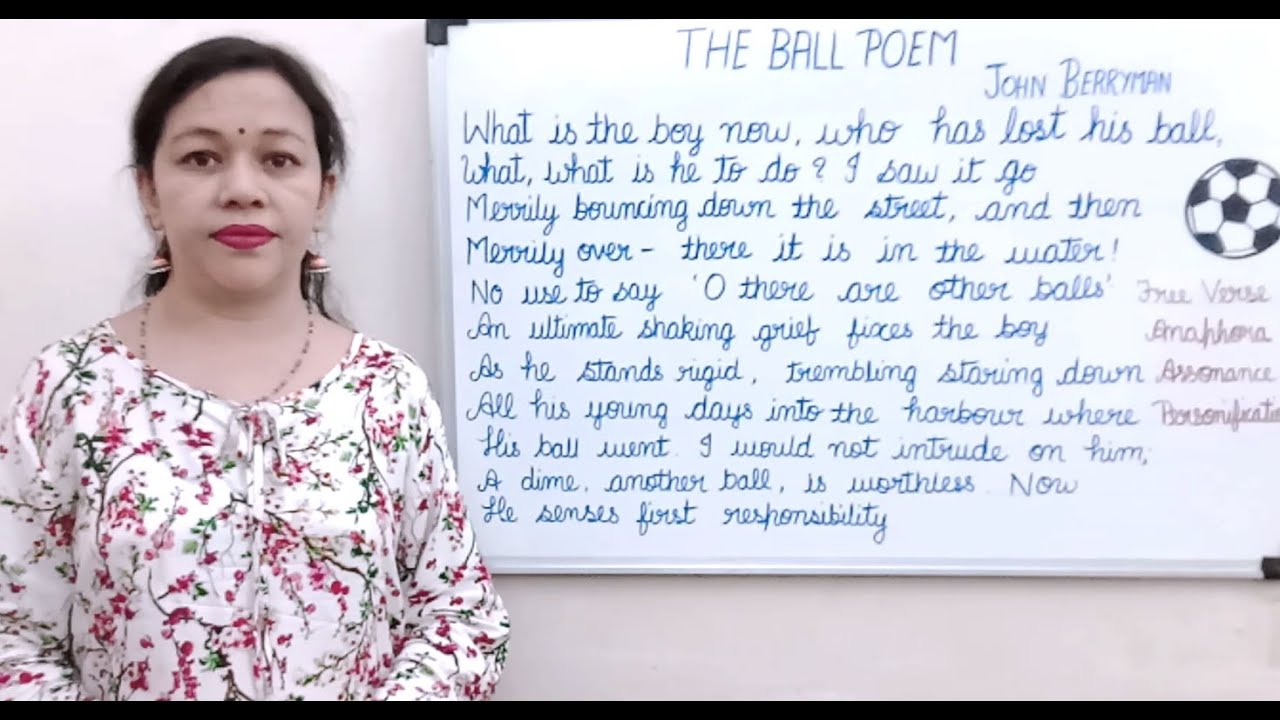 THE BALL POEM
JOHN BERRYMAN
What is the boy now, who has lost his ball,
What, what is he to do? I saw it go
Merrily bouncing down the street, and then
Merrily over - there it is in the water!
No use to say 'O there are other balls'
An ultimate shaking grief fixes the boy
As he stands rigid, trembling staring down
All his young days into the harbour where
His ball went. I would not intrude on him,
A dime, another ball, is worthless. Now
He senses first responsibility
Free Verse
Anaphora
Assonance
Personificatio